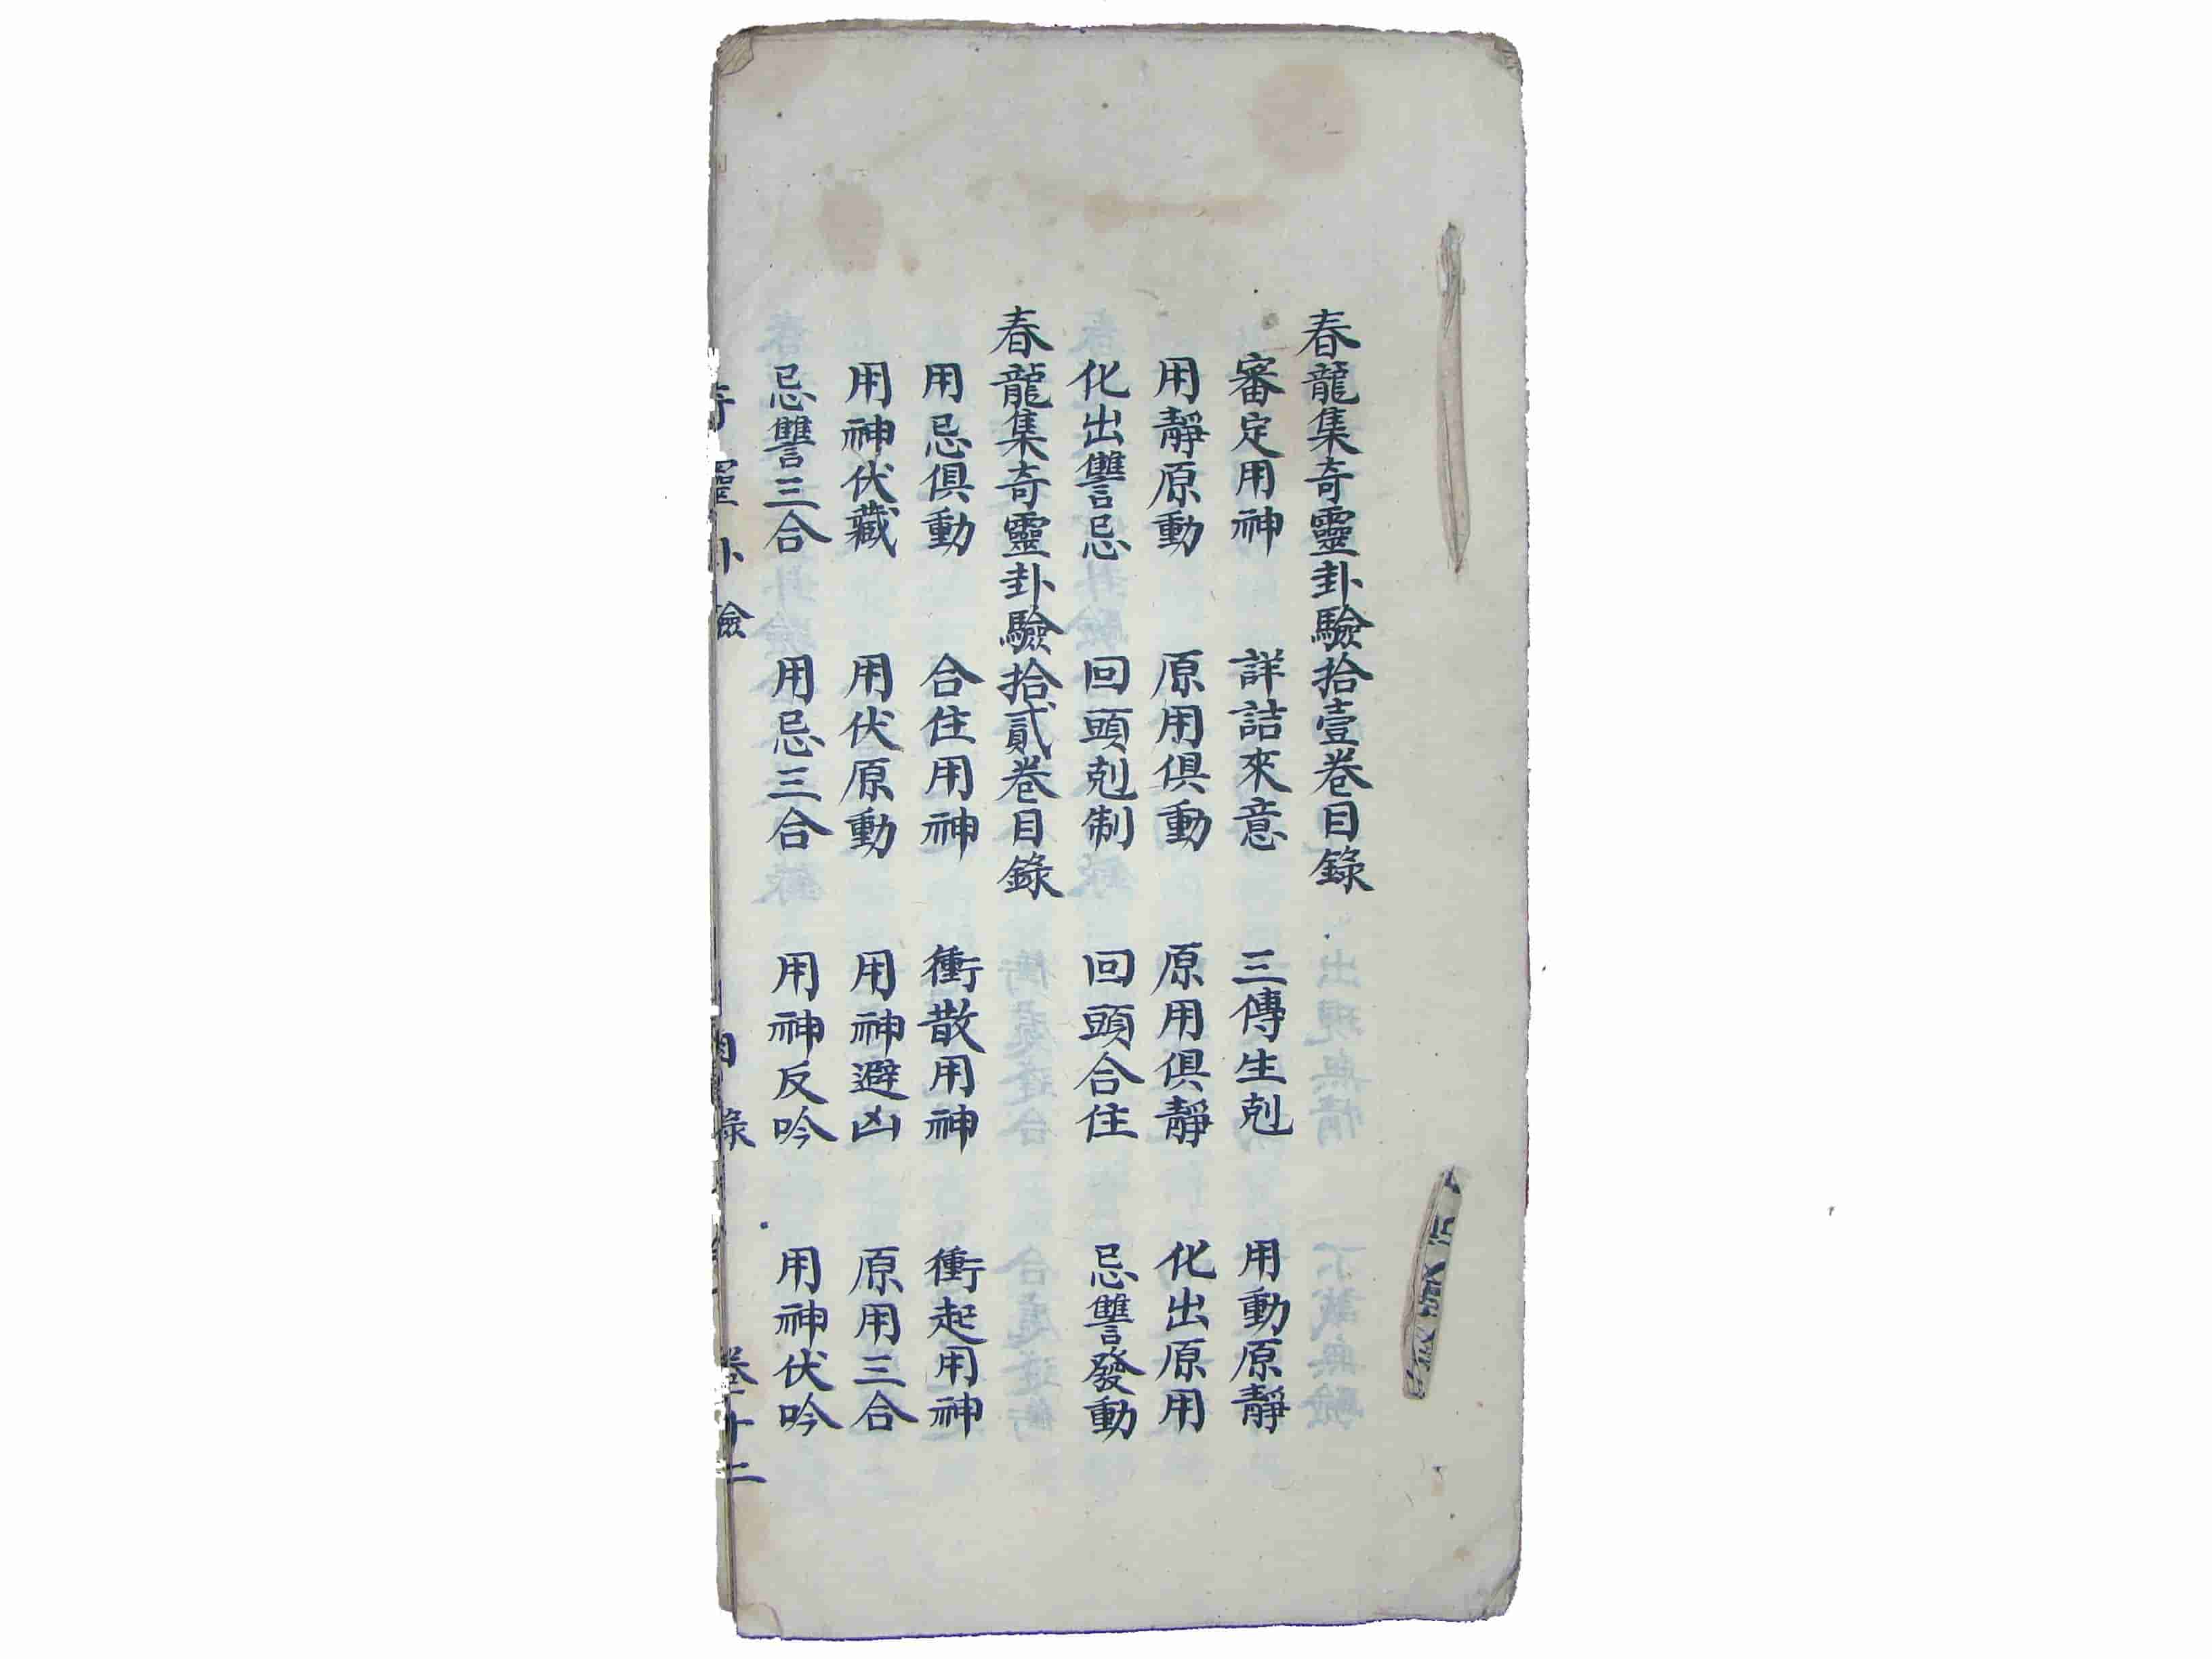 春龍集奇靈卦驗拾壹卷目錄
審定用神 詳詰來意 三傳生剋 用動原靜
用靜原動 原用俱動 原用俱靜 化出原用
化出讐忌 回頭剋制 回頭合住 忌讐發動
春龍集奇靈卦驗拾貳卷目錄
用忌俱動 合住用神 衝散用神 衝起用神
用神伏藏 用伏原動 用神避凶 原用三合
忌讐三合 用忌三合 用神反吟 用神伏吟
奇靈卦驗 目錄 卷十二